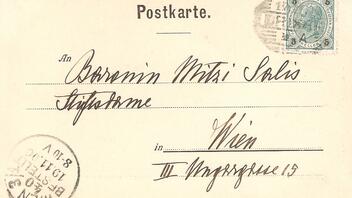 Postkarte.
An Baronin Mitzi Salis
Stiftsdame
in Wien
III Ungargasse 15
WIEN
BESTELLT